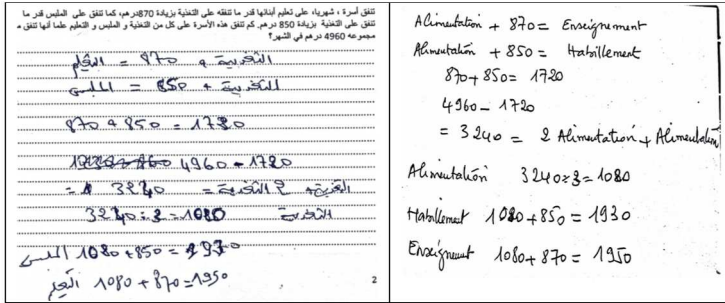 تنفق أسرة ، شهريا، على تعليم أبنائها قدر ما تنفقه على التغذية بزيادة 870درهم، كما تنفق على الملبس قدر ما
تنفق على التغذية بزيادة 850 درهم. كم تنفق هذه الأسرة على كل من التغذية و الملبس و التعليم علما أنها تنفق ما
مجموعه 4960 درهم في الشهر؟
التغذية + 870 = التعليم
التغذية + 850 = الملبس
870 + 850 = 1720
4960 - 1720
= 3240 = 2 التغذية + التغذية
التغذية 3240 ÷ 3 = 1080
الملبس 1080 + 850 = 1930
التعليم 1080 + 870 = 1950
2
Alimentation + 870 = Enseignement
Alimentation + 850 = Habillement
870 + 850 = 1720
4960 - 1720
= 3240 = 2 Alimentation + Alimentation
Alimentation 3240 ÷ 3 = 1080
Habillement 1080 + 850 = 1930
Enseignement 1080 + 870 = 1950